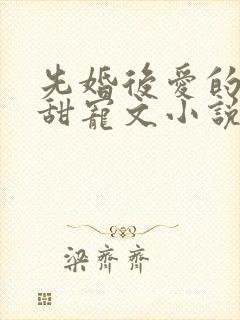 先婚後愛的
甜寵文小説
梁齊齊